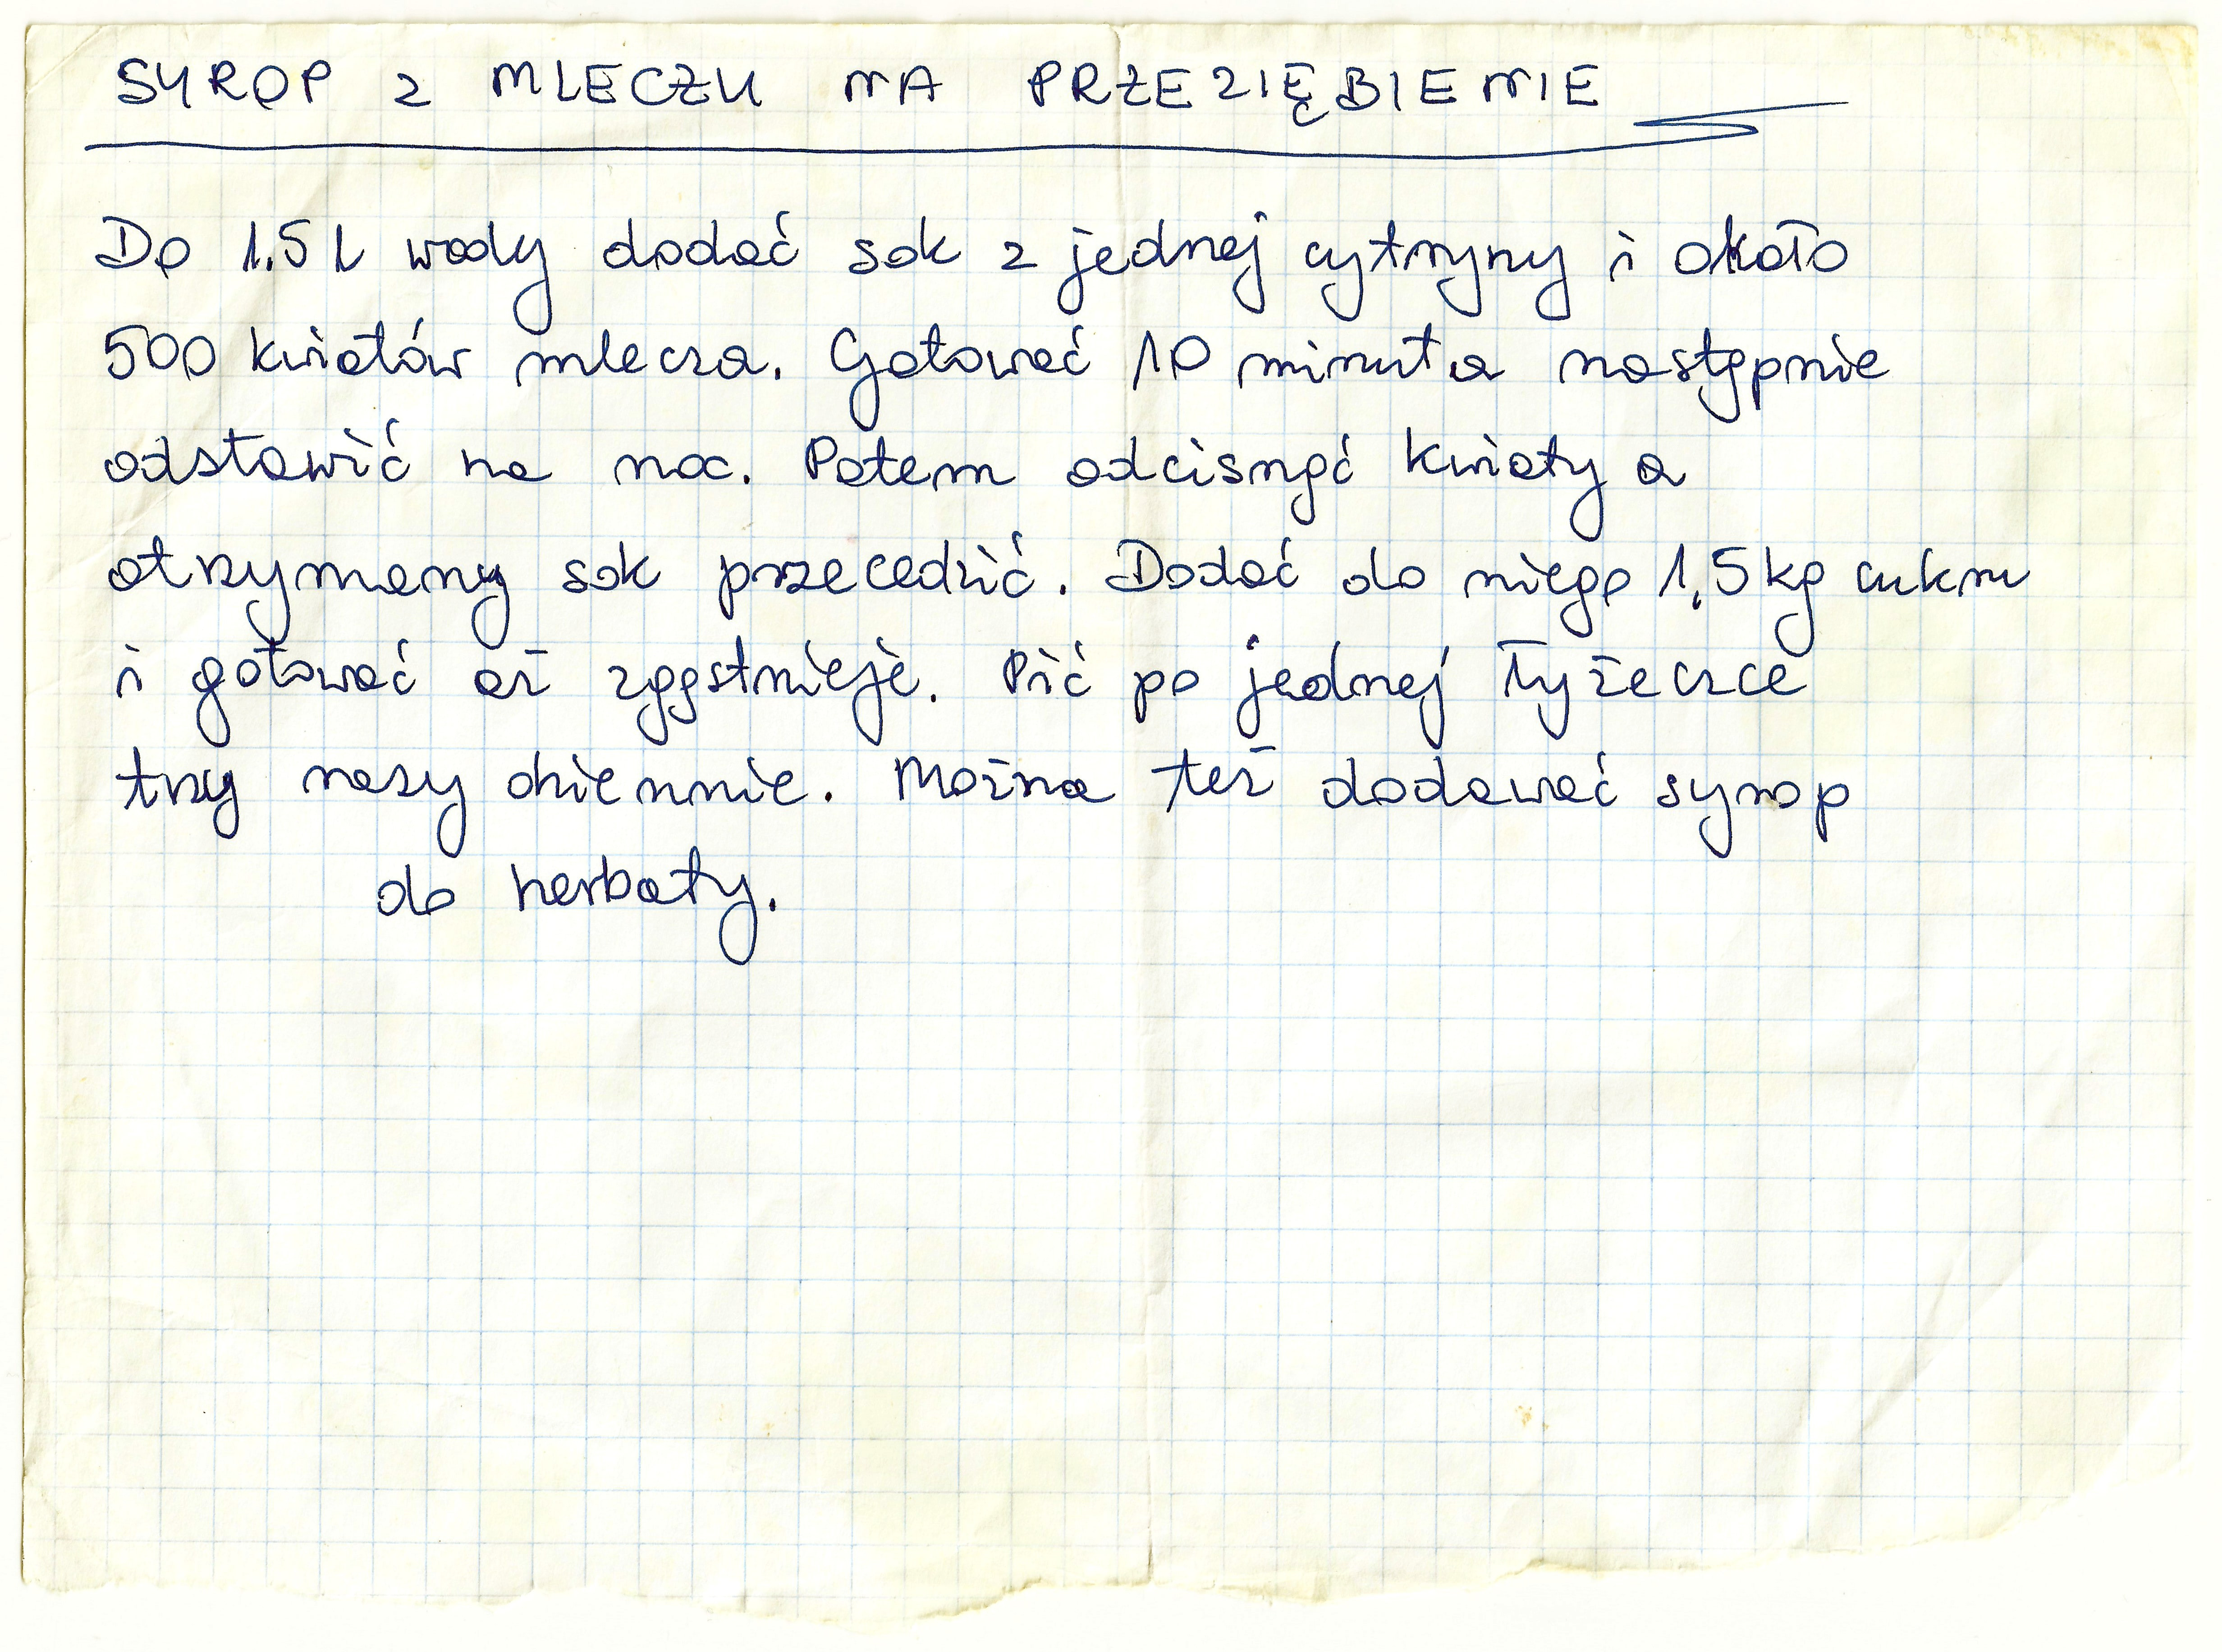 SYROP Z MLECZU NA PRZEZIĘBIENIE
Do 1.5 l wody dodać sok z jednej cytryny i około
500 kwiatów mlecza. Gotować 10 minut a następnie
odstawić na noc. Potem odcisnąć kwiaty a
otrzymany sok przecedzić. Dodać do niego 1,5 kg cukru
i gotować aż zgęstnieje. Pić po jednej łyżeczce
trzy razy dziennie. Można też dodawać syrop
do herbaty.